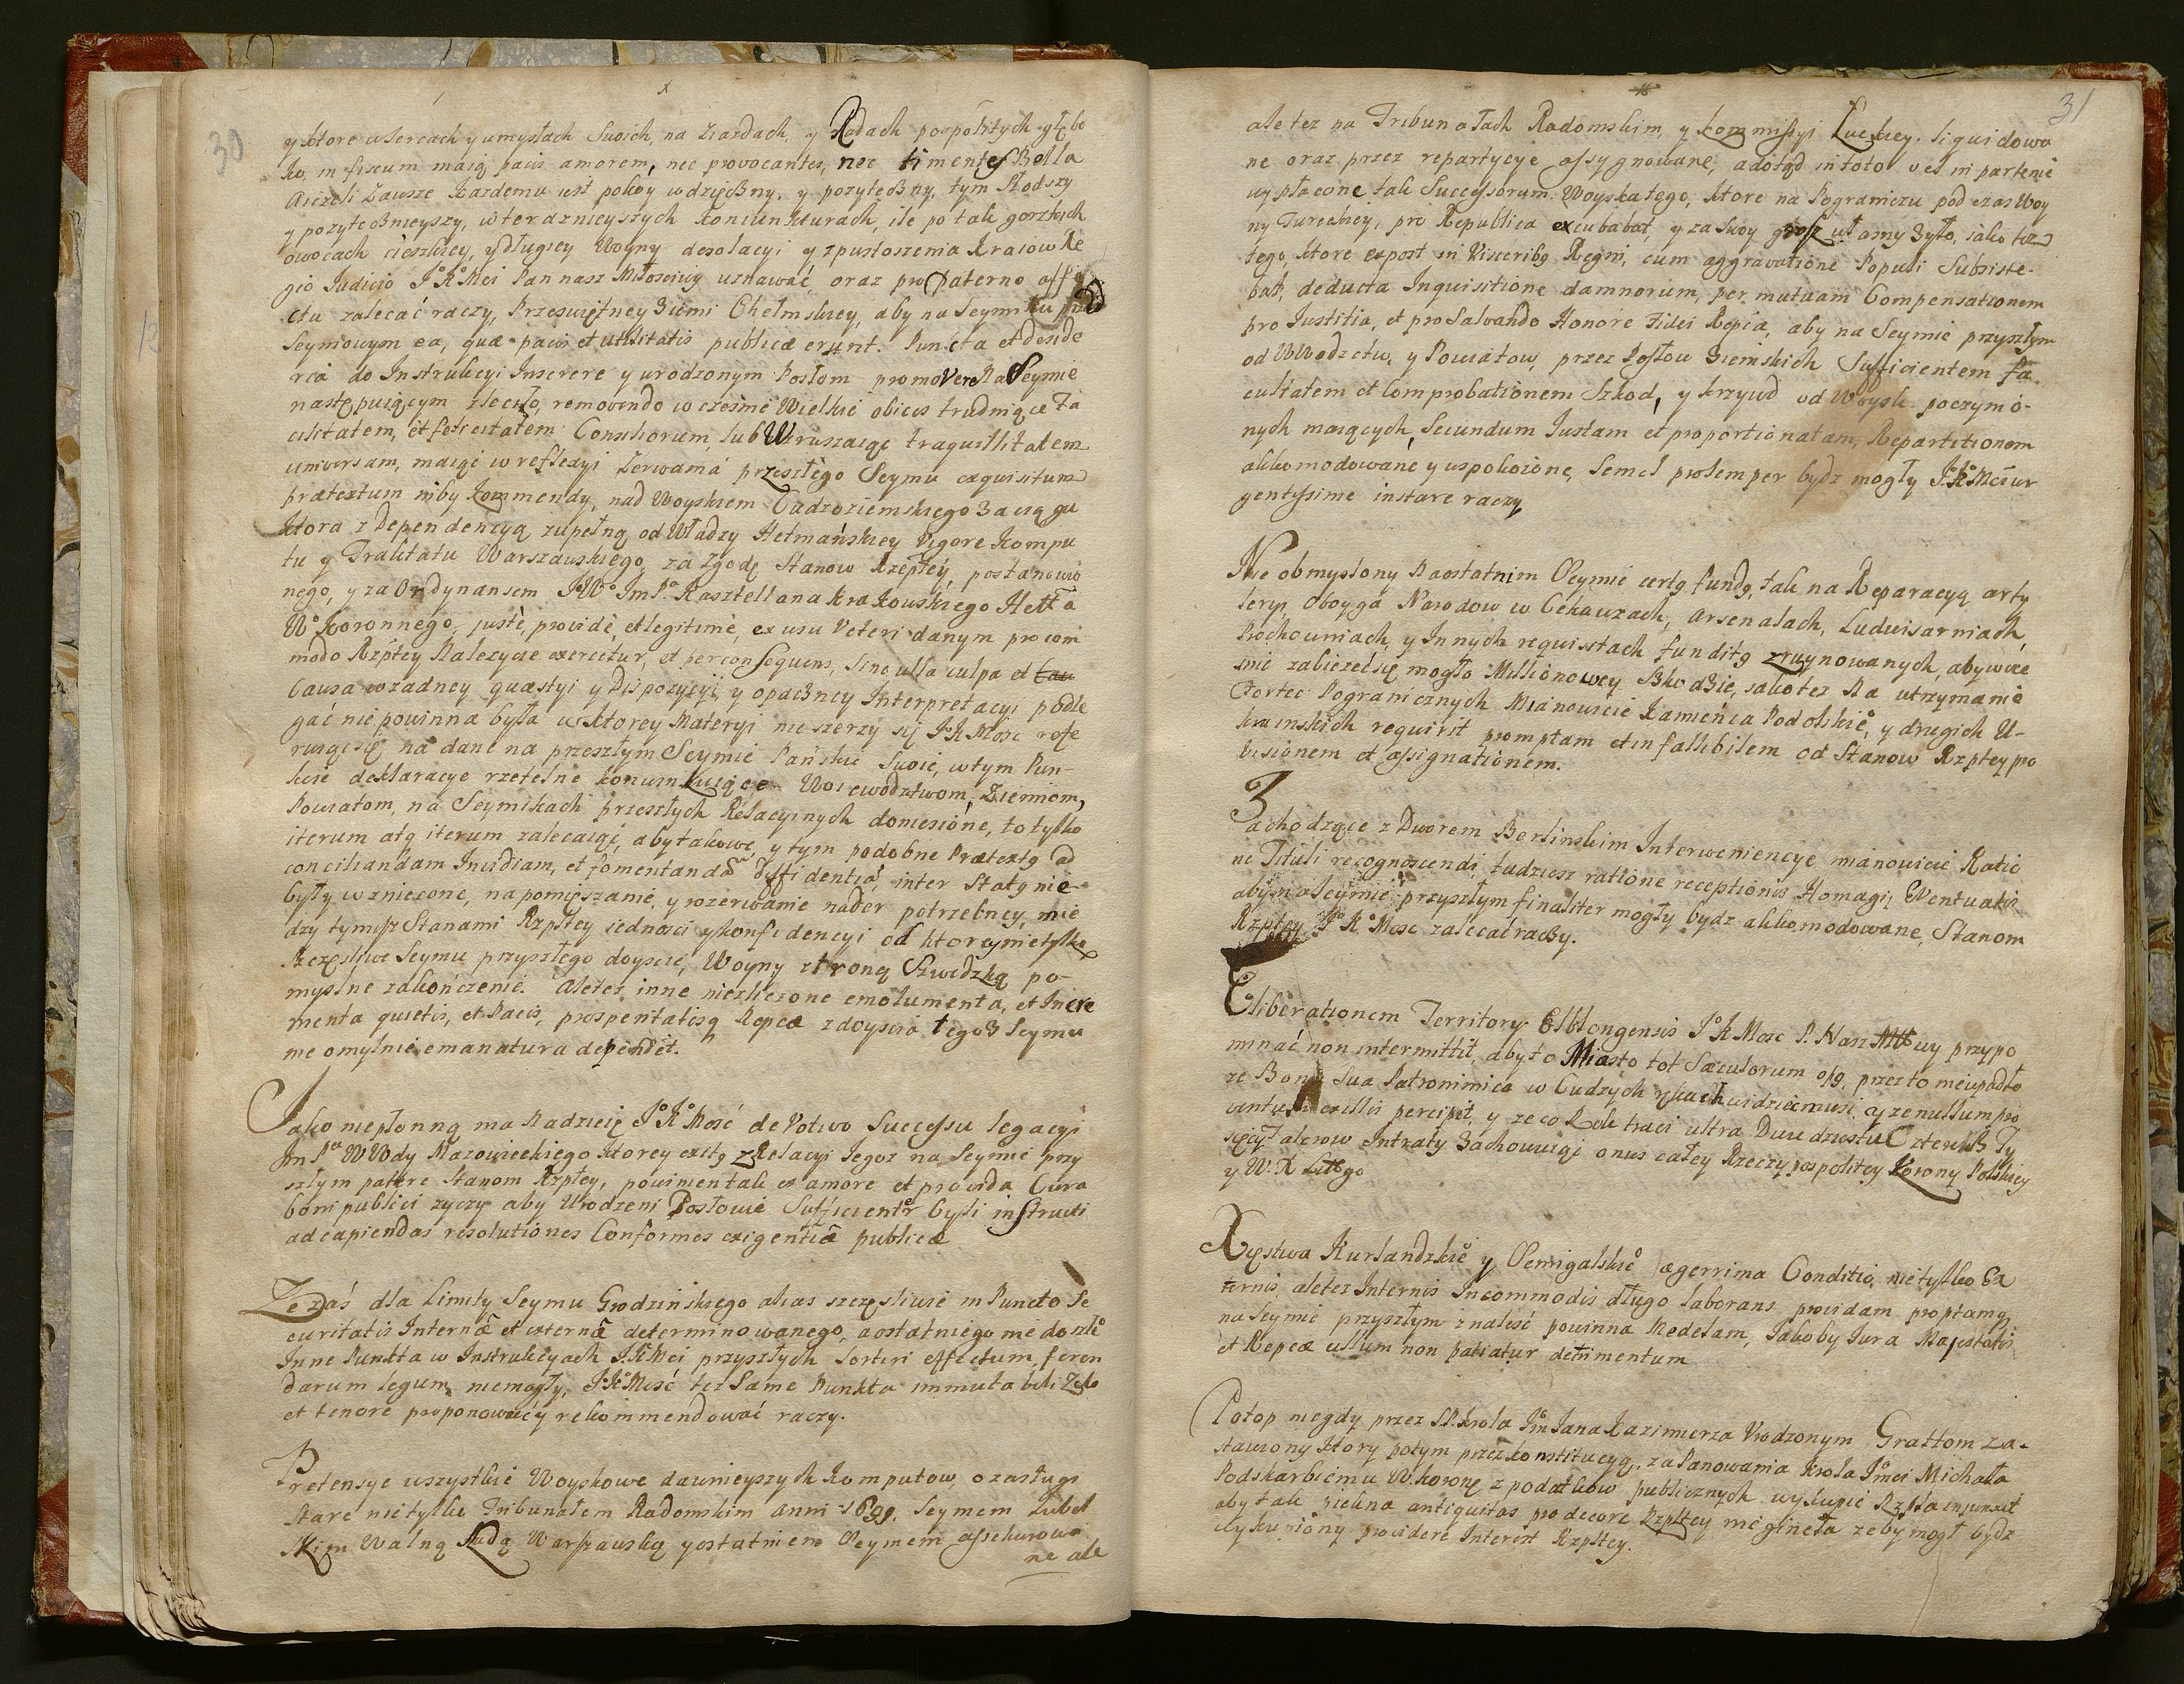 30
y ktore w sercach y umysłach swoich, na Ziazdach, y Radach pospolitych głębo
ko, in fixum maią pacis amorem, nec provocantes, nec timentes Bella
Aieżeli Zawsze kazdemu iest pokoy wdzięczny, y pozyteczny, tym słodszy
y pozytecznieyszy, w teraznieyszych koniunkturach, ile po tak gorzkich
owocach cieszkiey, y długiey Woyny desolacyi y zpustoszenia kraiow Re
gio Judicio J°K°Mci Pan nasz Miłosciwy uznawać, oraz pro paterno affe
ctu zalecać raczy, Przeswiętney Ziemi Chełmskiey, aby na Seymiku
Seymowym ea, quæ pacis et utilitatis publicæ erunt. Puncta et deside
ria do Instrukcyi Inserere y urodzonym Posłom promovere Na Seymie
następuiącym zleciło, removendo wczesnie Wielkie obices trudniące Fa
cilitatem, et felicitatem Consiliorum, lub Wzruszaiące tranquillitatem
universam, maiąc w reflexyi Zerwania przeszłego Seymu exquisitum
prætextum niby kommendy, nad Woyskiem Cudzoziemskiego Zaciągu
ktora z Dependencyą zupełną od Władzy Hetmańskiey Vigore kompu
tu y Traktatu Warszawskiego, za zgodą Stanow Rzeptey, postanowio
nego, y za Ordynansem J°W° Im P° Kasztellana krakowskiego Hettª
W° koronnego, justè, providè, et legitimè, ex usu Veteri danym pro com
modo Rzptey Nalezycie exercetur, et per consequens, sine ulla culpa et
Causa w zadney quæstyi y Dispozycyi, y opaczney Interpretacyi podle
gać nie powinna była w ktorey Materyi nie szerzy się J°K Mosc refe
ruiąc się na dane na przeszłym Seymie Pańskie swoie, w tym Pun-
kcie deklaracye rzetelne kommunikuiące Woiewodztwom, Ziemiom,
Powiatom, na Seymikach przeszłych Relacyinych doniesione, to tylko
iterum atq iterum zalecaiąc, aby takowe, y tym podobne Prætextą ad
conciliandam Invidiam, et fomentandã diffidentiã, inter Statą nie
były wzniecone, na pomięszanie, y rozerwanie nader potrzebney, mie
dzy tymisz Stanami Rzptey iednosci y konfidencyi od ktorey nietylko
szczęsliwe Seymu przyszłego doyscie, Woyny ztroną Szwedzką po-
myslne zakończenie. Aletez inne niezliczone emolumenta, et Incre
menta quietis, et Pacis, prosperitatisq Repcæ z doyscia tegoz Seymu
nie omylnie emanatura dependet.
Jako niepłonną ma Nadzieię J°K°Mosć de Votivo Successu legacyi
Im Pª WWdy Mazowieckiego ktorey exitą z Relacyi Iegoz na Seymie przy
szłym patere Stanom Rzptey, powinien tak ex amore et provida Cura
boni publici zyczy aby Urodzeni Posłowie Sufficientr byli instructi
ad capiendas resolutiones Conformes exigentiã publicæ
Ze zaś dla Limity Seymu Grodzinskiego alias szczęsliwie in Puncto Se
curitatis Internã et externã determinowanego, a ostatniego nie doszłe
Inne Punkta w Instrukcyach J.K.Mci przyszłych sortiri effectum feren
darum legum niemogły, J°K°Mosć tez same Punkta immutabili Zelo
et tenore proponować y rekommendować raczy.
Pretensye wszystkie Woyskowe dawnieyszych komputow, o zasługi
stare nietylko Tribunałem Radomskim anni 1699. Seymem Lubel
skim Walną Radą Warszawską y ostatniem Seymem assekurowa
ne ale
31
ale tez na Tribunałach Radomskim, y kommissyi Luckiey. liquidowa
ne oraz przez repartycye assygnowane, a dotąd in toto vel in parte nie
wypłacone tak Successorum Woyska tego, ktore na Pograniczu pod czas Woy
ny Tureckiey, pro Republica excubabat, y za swoy grosz własny zyło, iako tez
tego, ktore expost in Visceribą Regni, cum aggravatione Populi Subsiste-
bat, deducta Inquisitione damnorum, per mutuam Compensationem
pro Justitia, et pro Salvando Honore Fidei Repcæ, aby na Seymie przyszłym
od WWodztw, y Powiatow, przez Posłow Ziemskich Sufficientem Fa-
cultatem et Comprobationem Szkod, y krzywd od Woysk poczynio-
nych maiących, Secundum Justam et proportionatam, Repartitionem
akkomodowane y uspokoione, Semel pro semper bydz mogły J°K°Mć ur
gentissime instare raczy,
Nie obmyslony Na ostatnim Seymie certą fundą, tak na Reparacyą arty
leryi, Oboyga Narodow w Cekauzach, Arsenałach, Ludwisarniach
Prochowniach, y Innych requisitach funditą zruynowanych, aby w cze
snie zabiezeć się mogło Millionowey Szkodzie, iako tez Na utrzymanie
Fortec Pogranicznych Mianowicie Kamieńca Podolskie, y drugich U-
krainskich requirit promptam et infallibilem od Stanow Rzptey pro
visionem et assignationem.
Zachodzące z Dworem Berlinskim Interweniencye, mianowicie Ratio
ne Tituli recognoscendi, tudziesz ratione receptionis Homagii Eventualis
aby na Seymie przyszłym finaliter mogły bydz akkomodowane, Stanom
Rzptey J°K°Mosc zalecać raczy.
Eliberationem Territory Elblongensis J°K Mosc P. Nasz Młwy przypo
minać non intermittit, aby to Miasto tot Sæculorum ozą, przez to nieupadło
ze Bona Sua Patronimica w Cudzych rękach widziec musi, y ze nullum pro
ventum ex illis percipit, y ze co Rok traci ultra Dwudziestu Czterech Ty
sięcy Talerow Intraty Zachowuiąc onus całey Rzeczypospolitey Korony Polskiey
y W. X Littgo
Xięstwa Kurlandzkie y Semigalskie ægerrima Conditio, nietylko Ex
ternis, aletez Internis Incommodis długo laborans providam promptamq
na Seymie przyszłym znalesć powinna Medelam, Jakoby Jura Majestatis
et Repcæ ullum non patiatur detrimentum
Potop niegdy przez S.P. krola Im Jana Kazimierza Urodzonym Grattom za-
stawiony ktory potym przez konstitucyą, za Panowania krola Jmci Michała
Podskarbiemu W. koronę z podatkow publicznych wykupić Rzpta injunxit
aby tak piekna antiquitas pro decore Rzptey nie gineła zeby mogł bydz
wykupiony providere Interest Rzptey.